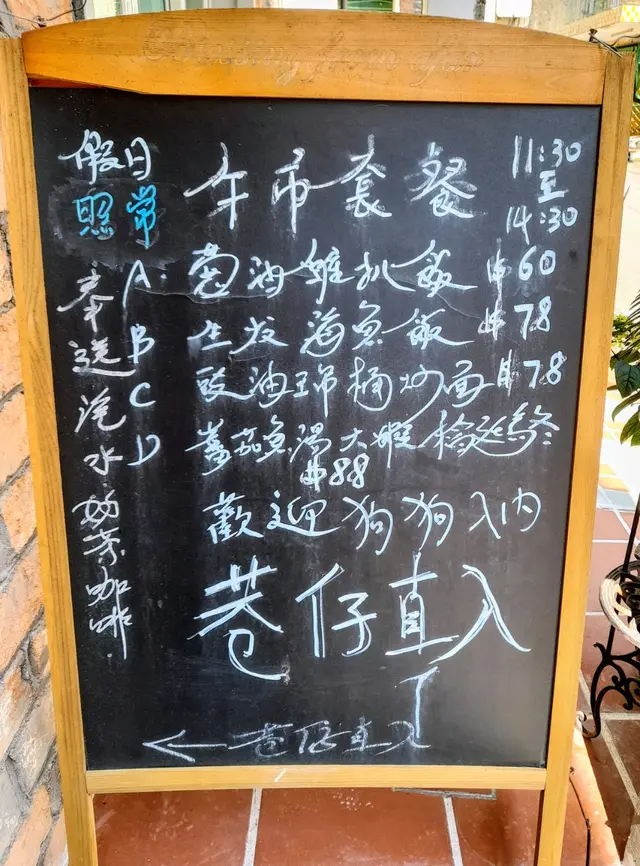 假日
照常
午市套餐
11:30
至
14:30
奉送汽水奶茶咖啡
A. 葱油雞扒飯 $60
B 生 海魚飯 $78
C 豉油王吊桶炒面 $78
D 蕃茄魚湯大蝦稻庭烏冬
$88
歡迎狗狗入內
巷仔直入
巷仔直入